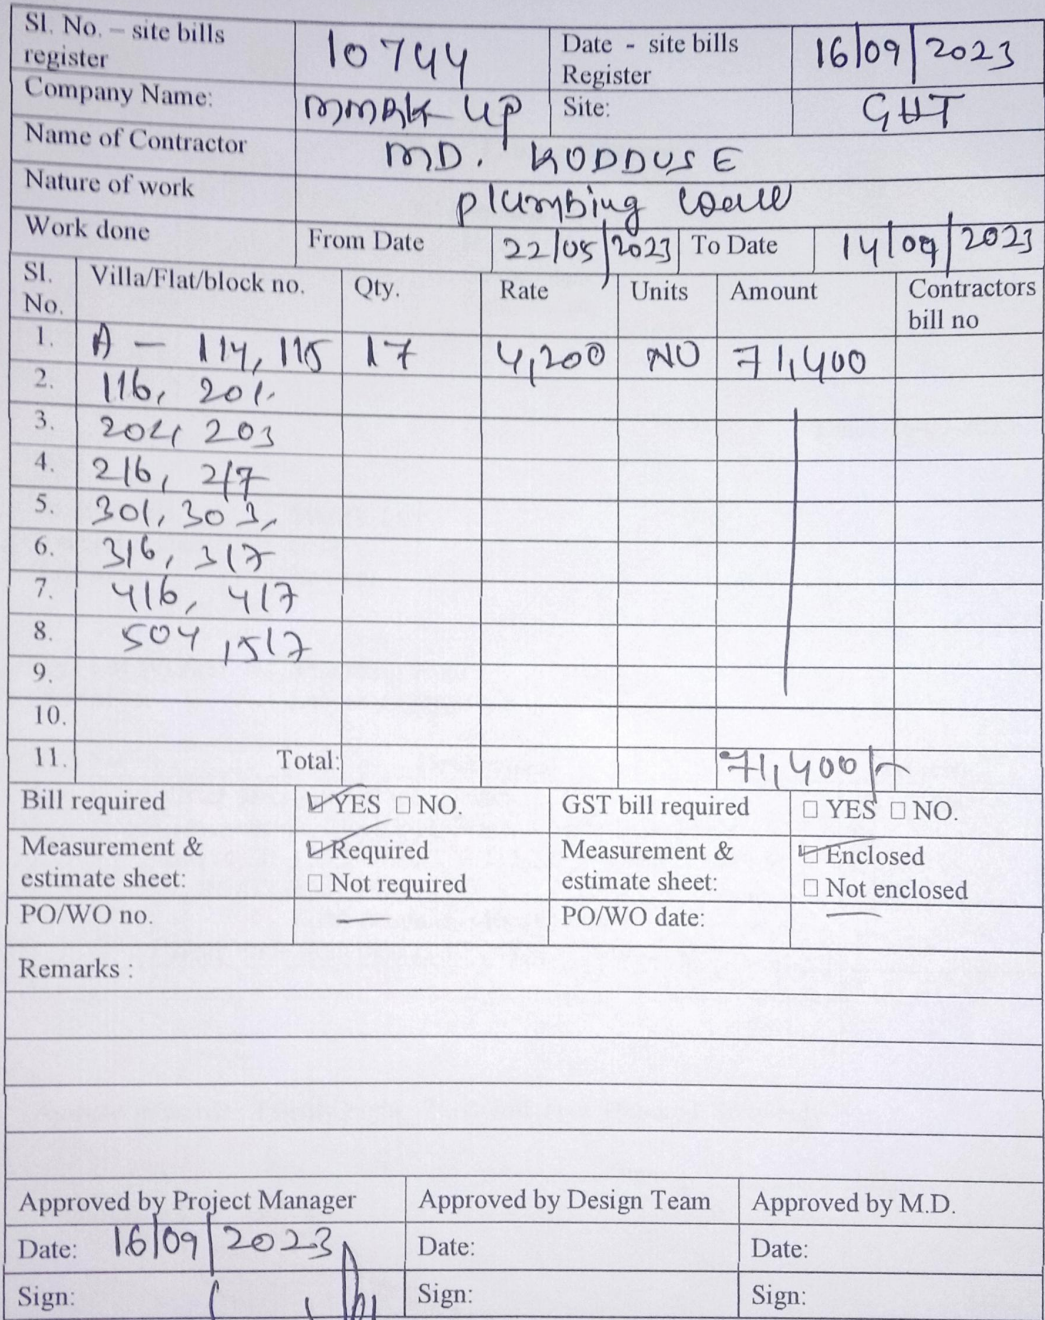 Sl. No. – site bills register 10744 Date - site bills Register 16/09/2023
Company Name: UP Site: GHT
Name of Contractor MD. KODDUSE
Nature of work plumbing
Work done From Date 22/05/2023 To Date 14/09/2023
Sl. No. Villa/Flat/block no. Qty. Rate Units Amount Contractors bill no
1. A - 114, 115 17 4,200 NO 71,400
2. 116, 201,
3. 203
4. 216, 217
5. 301, 303,
6. 316, 317
7. 416, 417
8. 504, 517
9.
10.
11. Total: 71,400/-
Bill required ☑ YES ☐ NO. GST bill required ☐ YES ☐ NO.
Measurement & estimate sheet: ☑ Required ☐ Not required Measurement & estimate sheet: ☑ Enclosed ☐ Not enclosed
PO/WO no. — PO/WO date: —
Remarks :
Approved by Project Manager Approved by Design Team Approved by M.D.
Date: 16/09/2023 Date: Date:
Sign: Sign: Sign: